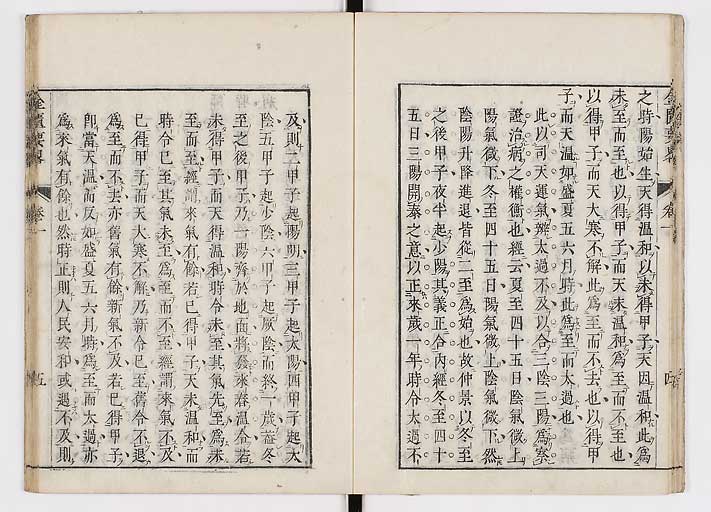 之時陽始生天得溫和以未得甲子天因溫和此爲
未至而至也以得甲子而天未溫和爲至而不至也
以得甲子而天大寒不解此爲至而不去也以得甲
子而天溫如盛夏五六月時此爲至而太過也
此以司天運氣辨太過不及以合三陰三陽爲察
證治病之權衡也經云夏至四十五日陰氣微上
陽氣微下冬至四十五日陽氣微上陰氣微下然
陰陽升降進退皆從二至爲始也故仲景以冬至
之後甲子夜半起少陽其義正合內經冬至四十
五日三陽開泰之意以正來歲一年時令太過不
金匱要畧
卷一
四
及則二甲子起陽明三甲子起太陽四甲子起太
陰五甲子起少陰六甲子起厥陰而終一歲蓋冬
至之後甲子乃一陽齊於地面將發來春溫令若
未得甲子而天得溫和時令未至其氣先至爲未
至而至經謂來氣有餘若已得甲子天未溫和而
時令已至其氣未至爲至而不至經謂來氣不及
已得甲子而天大寒不解乃新令已至舊令不退
爲至而不去亦舊氣有餘新氣不及若已得甲子
卽當天溫而反如盛夏五六月時爲至而太過亦
爲來氣有餘也然時正則人民安和或遇不及則
金匱要畧
卷一
五